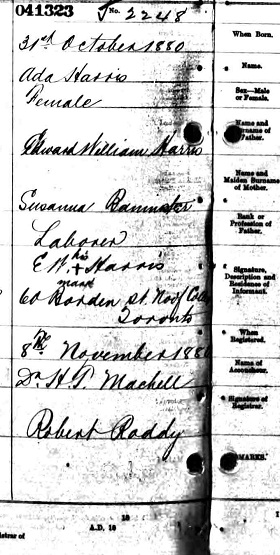 041323 No. 2248
31st October 1880 When Born.
Ada Harris Name.
Female Sex—Male or Female.
Edward William Harris Name and Surname of Father.
Susanna Bannister Name and Maiden Surname of Mother.
Laborer Rank or Profession of Father.
his
E W + Harris Signature, Description and Residence of Informant.
mark
60 Borden St. No of
Toronto
8th November 188 When Registered.
Dr H. T. Machell Name of Accoucheur.
Robert Roddy Signature of Registrar.
REMARKS.
18
A.D. 18
istrar of